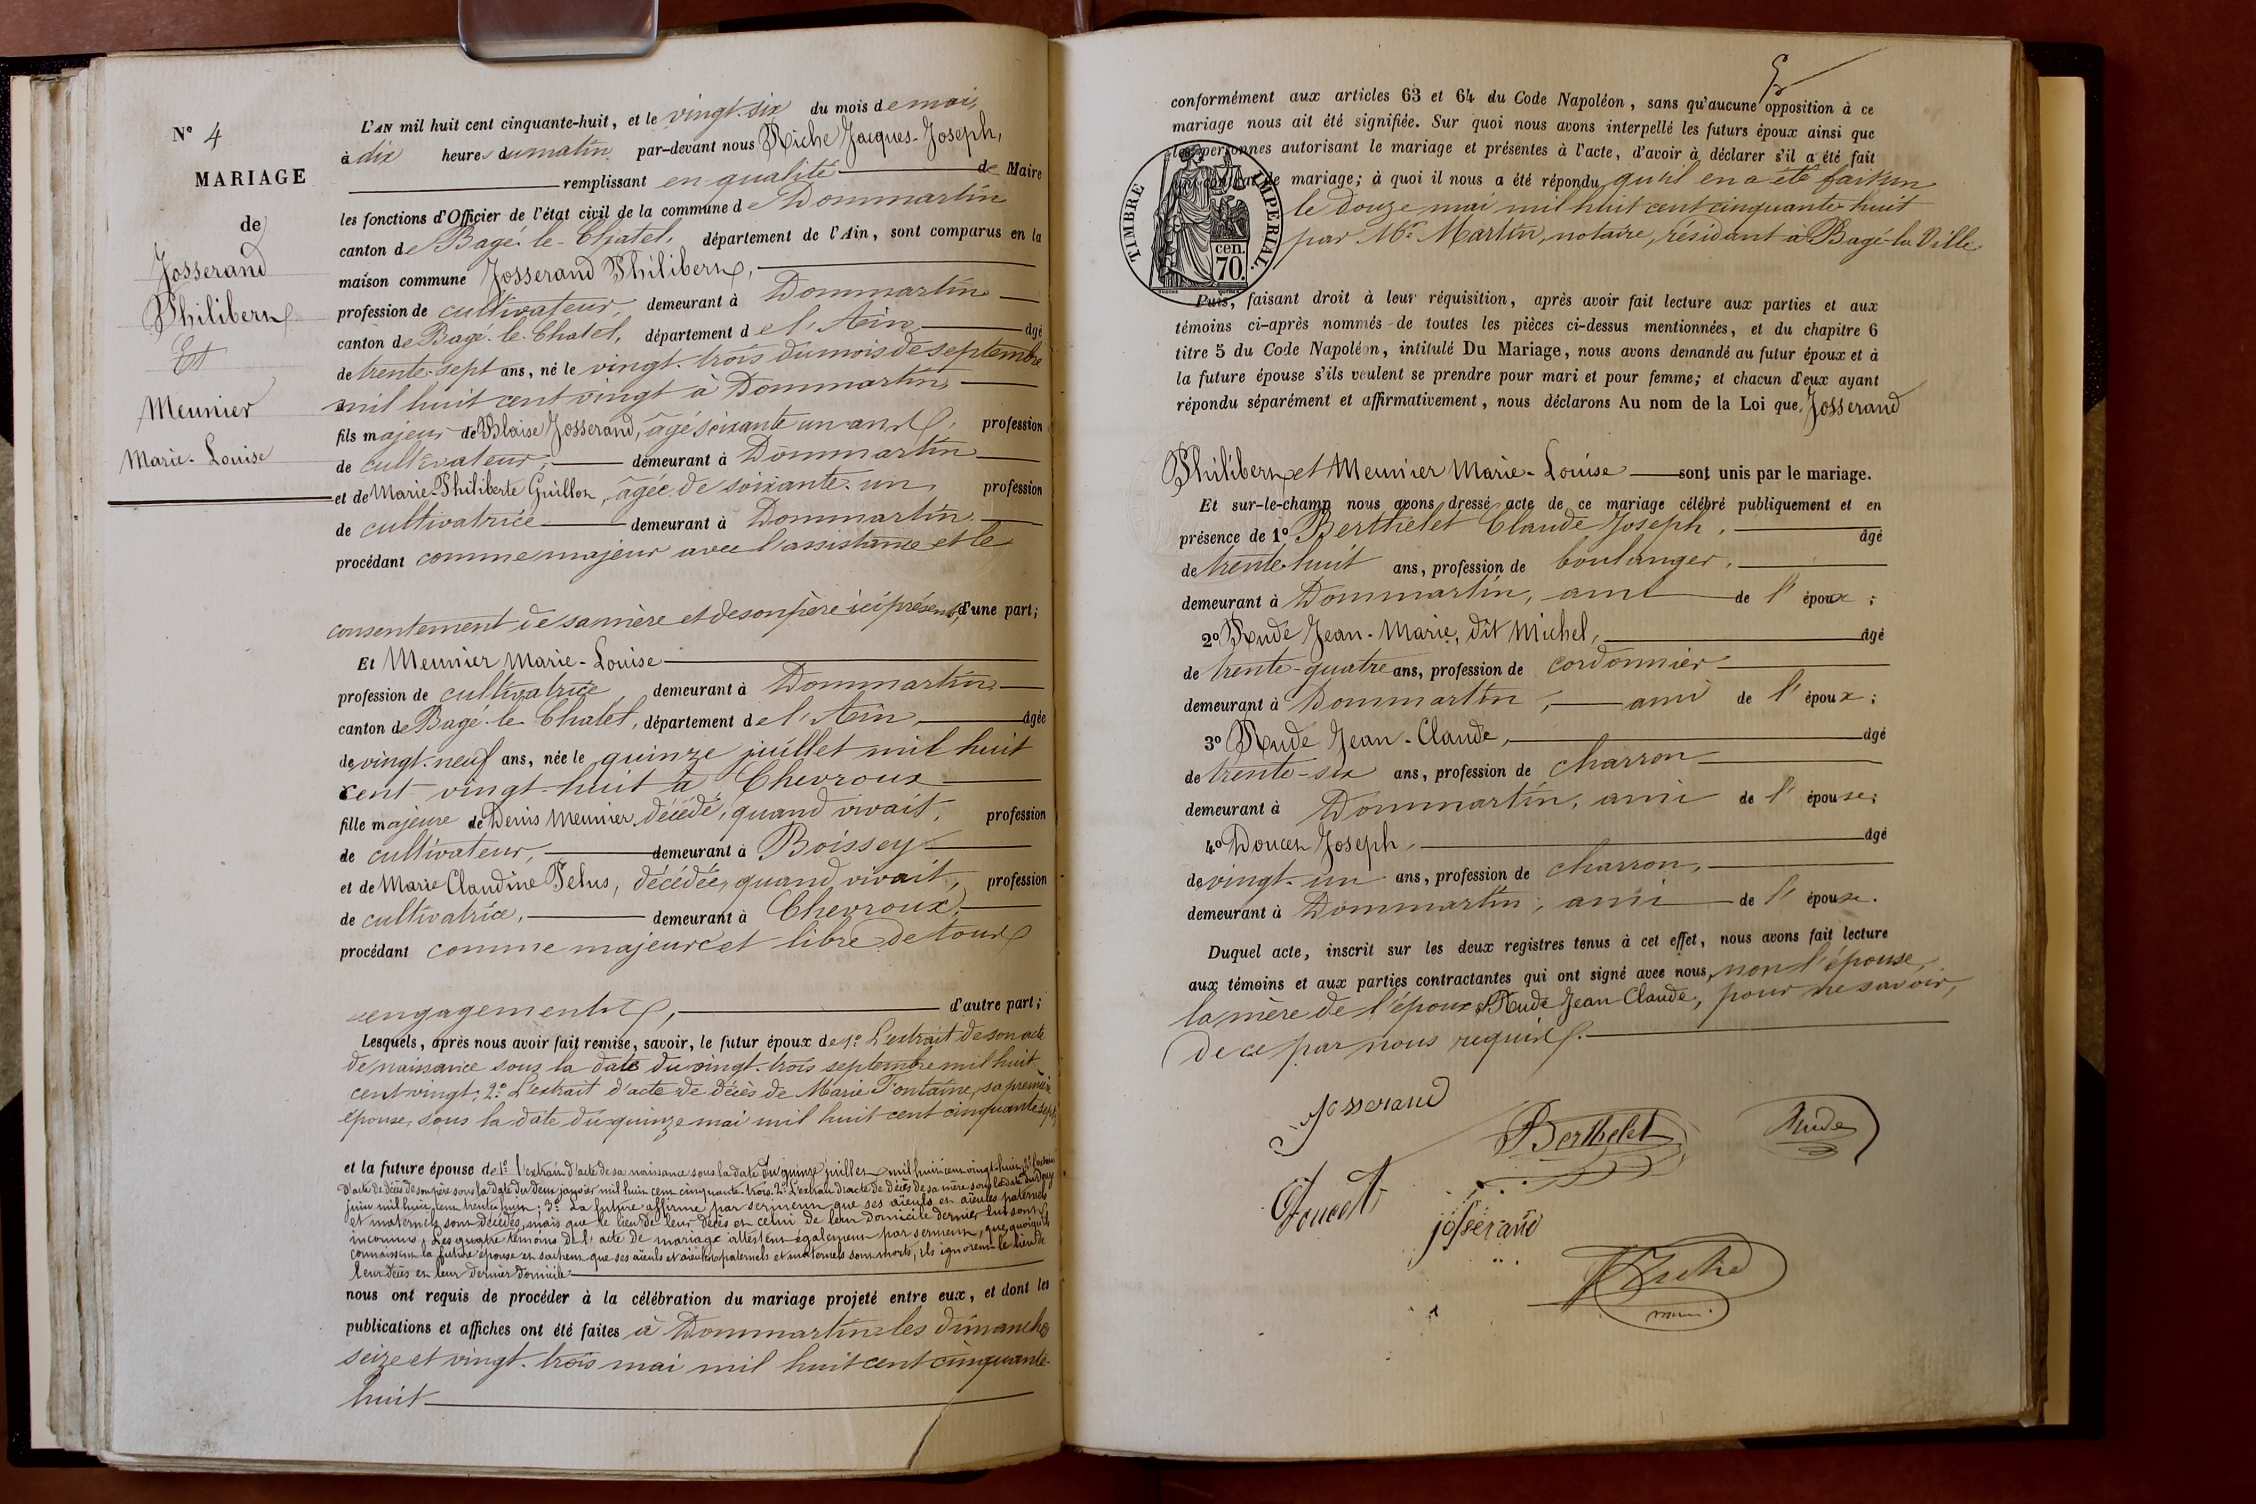 N° 4
MARIAGE
de
Josserand
Philibert
Et
Meunier
Marie-Louise
L'AN mil huit cent cinquante-huit, et le vingt-six du mois de mai,
à dix heures du matin par-devant nous Riche Jacques-Joseph,
remplissant en qualité de Maire
les fonctions d'Officier de l'état civil de la commune de Dommartin
canton de Bagé-le-Chatel, département de l'Ain, sont comparus en la
maison commune Josserand Philibert,
profession de cultivateur, demeurant à Dommartin
canton de Bagé-le-Chatel, département de l'Ain, âgé
de trente-sept ans, né le vingt-trois du mois de septembre
mil huit cent vingt à Dommartin,
fils majeur de Blaise Josserand, âgé soixante un ans, profession
de cultivateur, demeurant à Dommartin
et de Marie-Philiberte Guillon, âgée de soixante-un, profession
de cultivatrice demeurant à Dommartin
procédant comme majeur avec l'assistance et le
consentement de sa mère et de son père ici présents, d'une part;
Et Meunier Marie-Louise
profession de cultivatrice, demeurant à Dommartin,
canton de Bagé-le-Chatel, département de l'Ain, âgée
de vingt-neuf ans, née le quinze juillet mil huit
cent vingt-huit à Chevroux
fille majeure de Denis Meunier décédé, quand vivait, profession
de cultivateur, demeurant à Boissey
et de Marie Claudine Pelus, décédée, quand vivait, profession
de cultivatrice, demeurant à Chevroux,
procédant comme majeure et libre de tous
engagements, d'autre part;
Lesquels, après nous avoir fait remise, savoir, le futur époux de 1° L'extrait de son acte
de naissance sous la date du vingt-trois septembre mil huit
cent vingt; 2° L'extrait d'acte de décès de Marie Fontaine, sa première
épouse, sous la date du quinze mai mil huit cent cinquante sept,
et la future épouse de 1° l'extrait d'acte de sa naissance sous la date du quinze juillet mil huit cent vingt-huit; 2° l'extrait
d'acte de décès de son père sous la date du deux janvier mil huit cent cinquante-trois. 2° L'extrait d'acte de décès de sa mère sous la date du
juin mil huit cent trente huit; 3° La future affirme par serment que ses aïeuls et aïeules paternels
et maternels sont décédés, mais que le lieu de leur décès et celui de leur domicile dernier lui sont
inconnus. Les quatre témoins de l'acte de mariage attestent également par serment, que, quoiqu'ils
connaissent la future épouse et sachent que ses aïeuls et aïeules paternels et maternels sont morts, ils ignorent le lieu de
leur décès et leur dernier domicile
nous ont requis de procéder à la célébration du mariage projeté entre eux, et dont les
publications et affiches ont été faites à Dommartin les dimanches
seize et vingt-trois mai mil huit cent cinquante-
huit
5
conformément aux articles 63 et 64 du Code Napoléon, sans qu'aucune opposition à ce
mariage nous ait été signifiée. Sur quoi nous avons interpellé les futurs époux ainsi que
les personnes autorisant le mariage et présentes à l'acte, d'avoir à déclarer s'il a été fait
un contrat de mariage; à quoi il nous a été répondu qu'il en a été fait un
le douze mai mil huit cent cinquante-huit
par Me Martin, notaire, résidant à Bagé-la-Ville
TIMBRE IMPERIAL.
cen.
70.
Puis, faisant droit à leur réquisition, après avoir fait lecture aux parties et aux
témoins ci-après nommés de toutes les pièces ci-dessus mentionnées, et du chapitre 6
titre 5 du Code Napoléon, intitulé Du Mariage, nous avons demandé au futur époux et à
la future épouse s'ils veulent se prendre pour mari et pour femme; et chacun d'eux ayant
répondu séparément et affirmativement, nous déclarons Au nom de la Loi que, Josserand
Philibert et Meunier Marie-Louise sont unis par le mariage.
Et sur-le-champ nous avons dressé acte de ce mariage célébré publiquement et en
présence de 1° Berthelet Claude Joseph, âgé
de trente-huit ans, profession de boulanger,
demeurant à Dommartin, ami de l'époux;
2° Rude Jean-Marie, dit Michel, âgé
de trente-quatre ans, profession de cordonnier
demeurant à Dommartin, ami de l'époux;
3° Rude Jean-Claude, âgé
de trente-six ans, profession de charron
demeurant à Dommartin, ami de l'épouse;
4° Doucet Joseph, âgé
de vingt-un ans, profession de charron,
demeurant à Dommartin, ami de l'épouse.
Duquel acte, inscrit sur les deux registres tenus à cet effet, nous avons fait lecture
aux témoins et aux parties contractantes qui ont signé avec nous, non l'épouse,
la mère de l'époux & Rude Jean-Claude, pour ne savoir,
de ce par nous requis.
Josserand
Berthelet
Rude
Doucet
josserand
Riche
maire